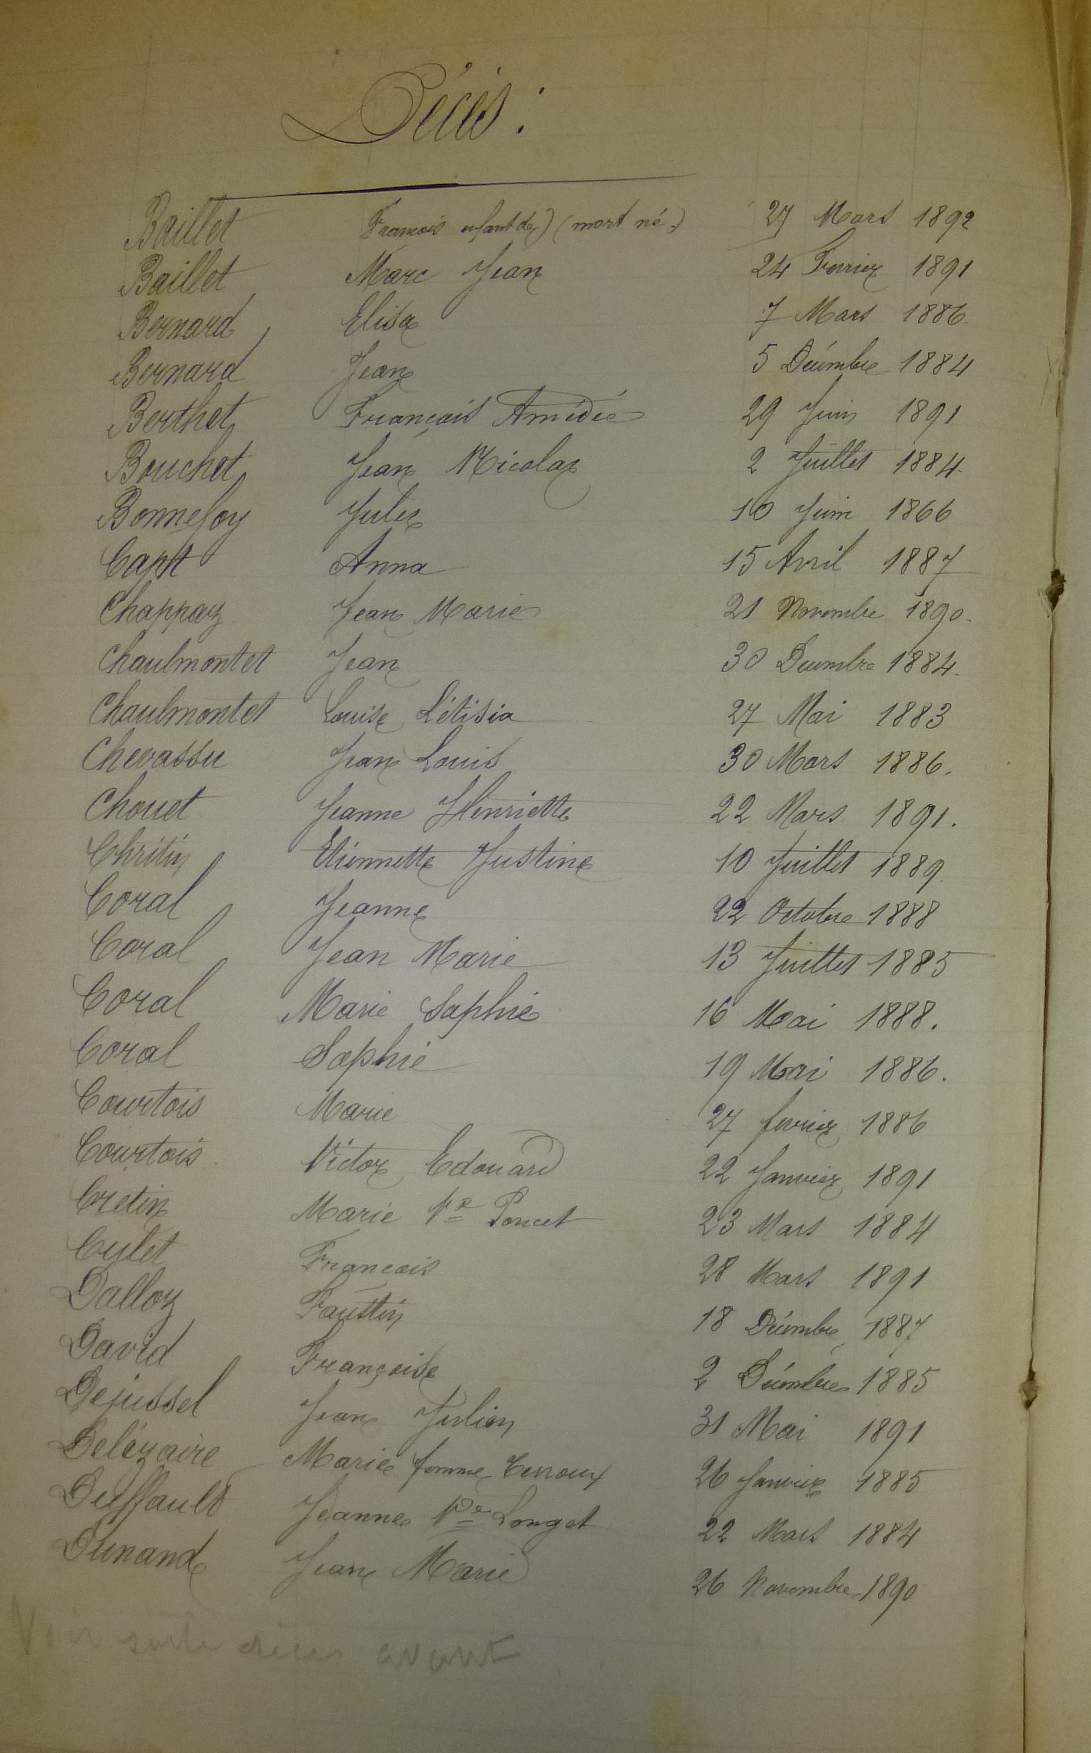 Décès :
Baillet François enfant de) (mort né.) 27 Mars 1892
Baillet Marc Jean 24 Fevrier 1891
Bernard Elisa 7 Mars 1886.
Bernard Jean 5 Décembre 1884
Berthet François Amédée 29 Juin 1891
Bouchet Jean Nicolas 2 Juillet 1884
Bonnefoy Jules 10 Juin 1866
Capt Anna 15 Avril 1887
Chappaz Jean Marie 21 Novembre 1890.
Chaulmontet Jean 30 Decembre 1884.
Chaulmontet Louise Létisia 27 Mai 1883
Chevassu Jean Louis 30 Mars 1886.
Chouet Jeanne Henriette 22 Mars 1891.
Christin Etiennette Justine 10 Juillet 1889
Coral Jeanne 22 Octobre 1888
Coral Jean Marie 13 Juillet 1885
Coral Marie Sophie 16 Mai 1888.
Coral Sophie 19 Mai 1886.
Courtois Marie 27 fevrier 1886
Courtois Victor Edouard 22 Janvier 1891
Cretin Marie Ve Poncet 23 Mars 1884
Culet Francois 28 Mars 1891
Dalloz Faustin 18 Décembre 1887
David Françoise 2 Décembre 1885
Dejussel Jean Julien 31 Mai 1891
Delézaire Marie femme 26 Janvier 1885
Duffauld Jeanne Ve Longet 22 Mars 1884
Dunand Jean Marie 26 Novembre 1890
Voir suite décès avant